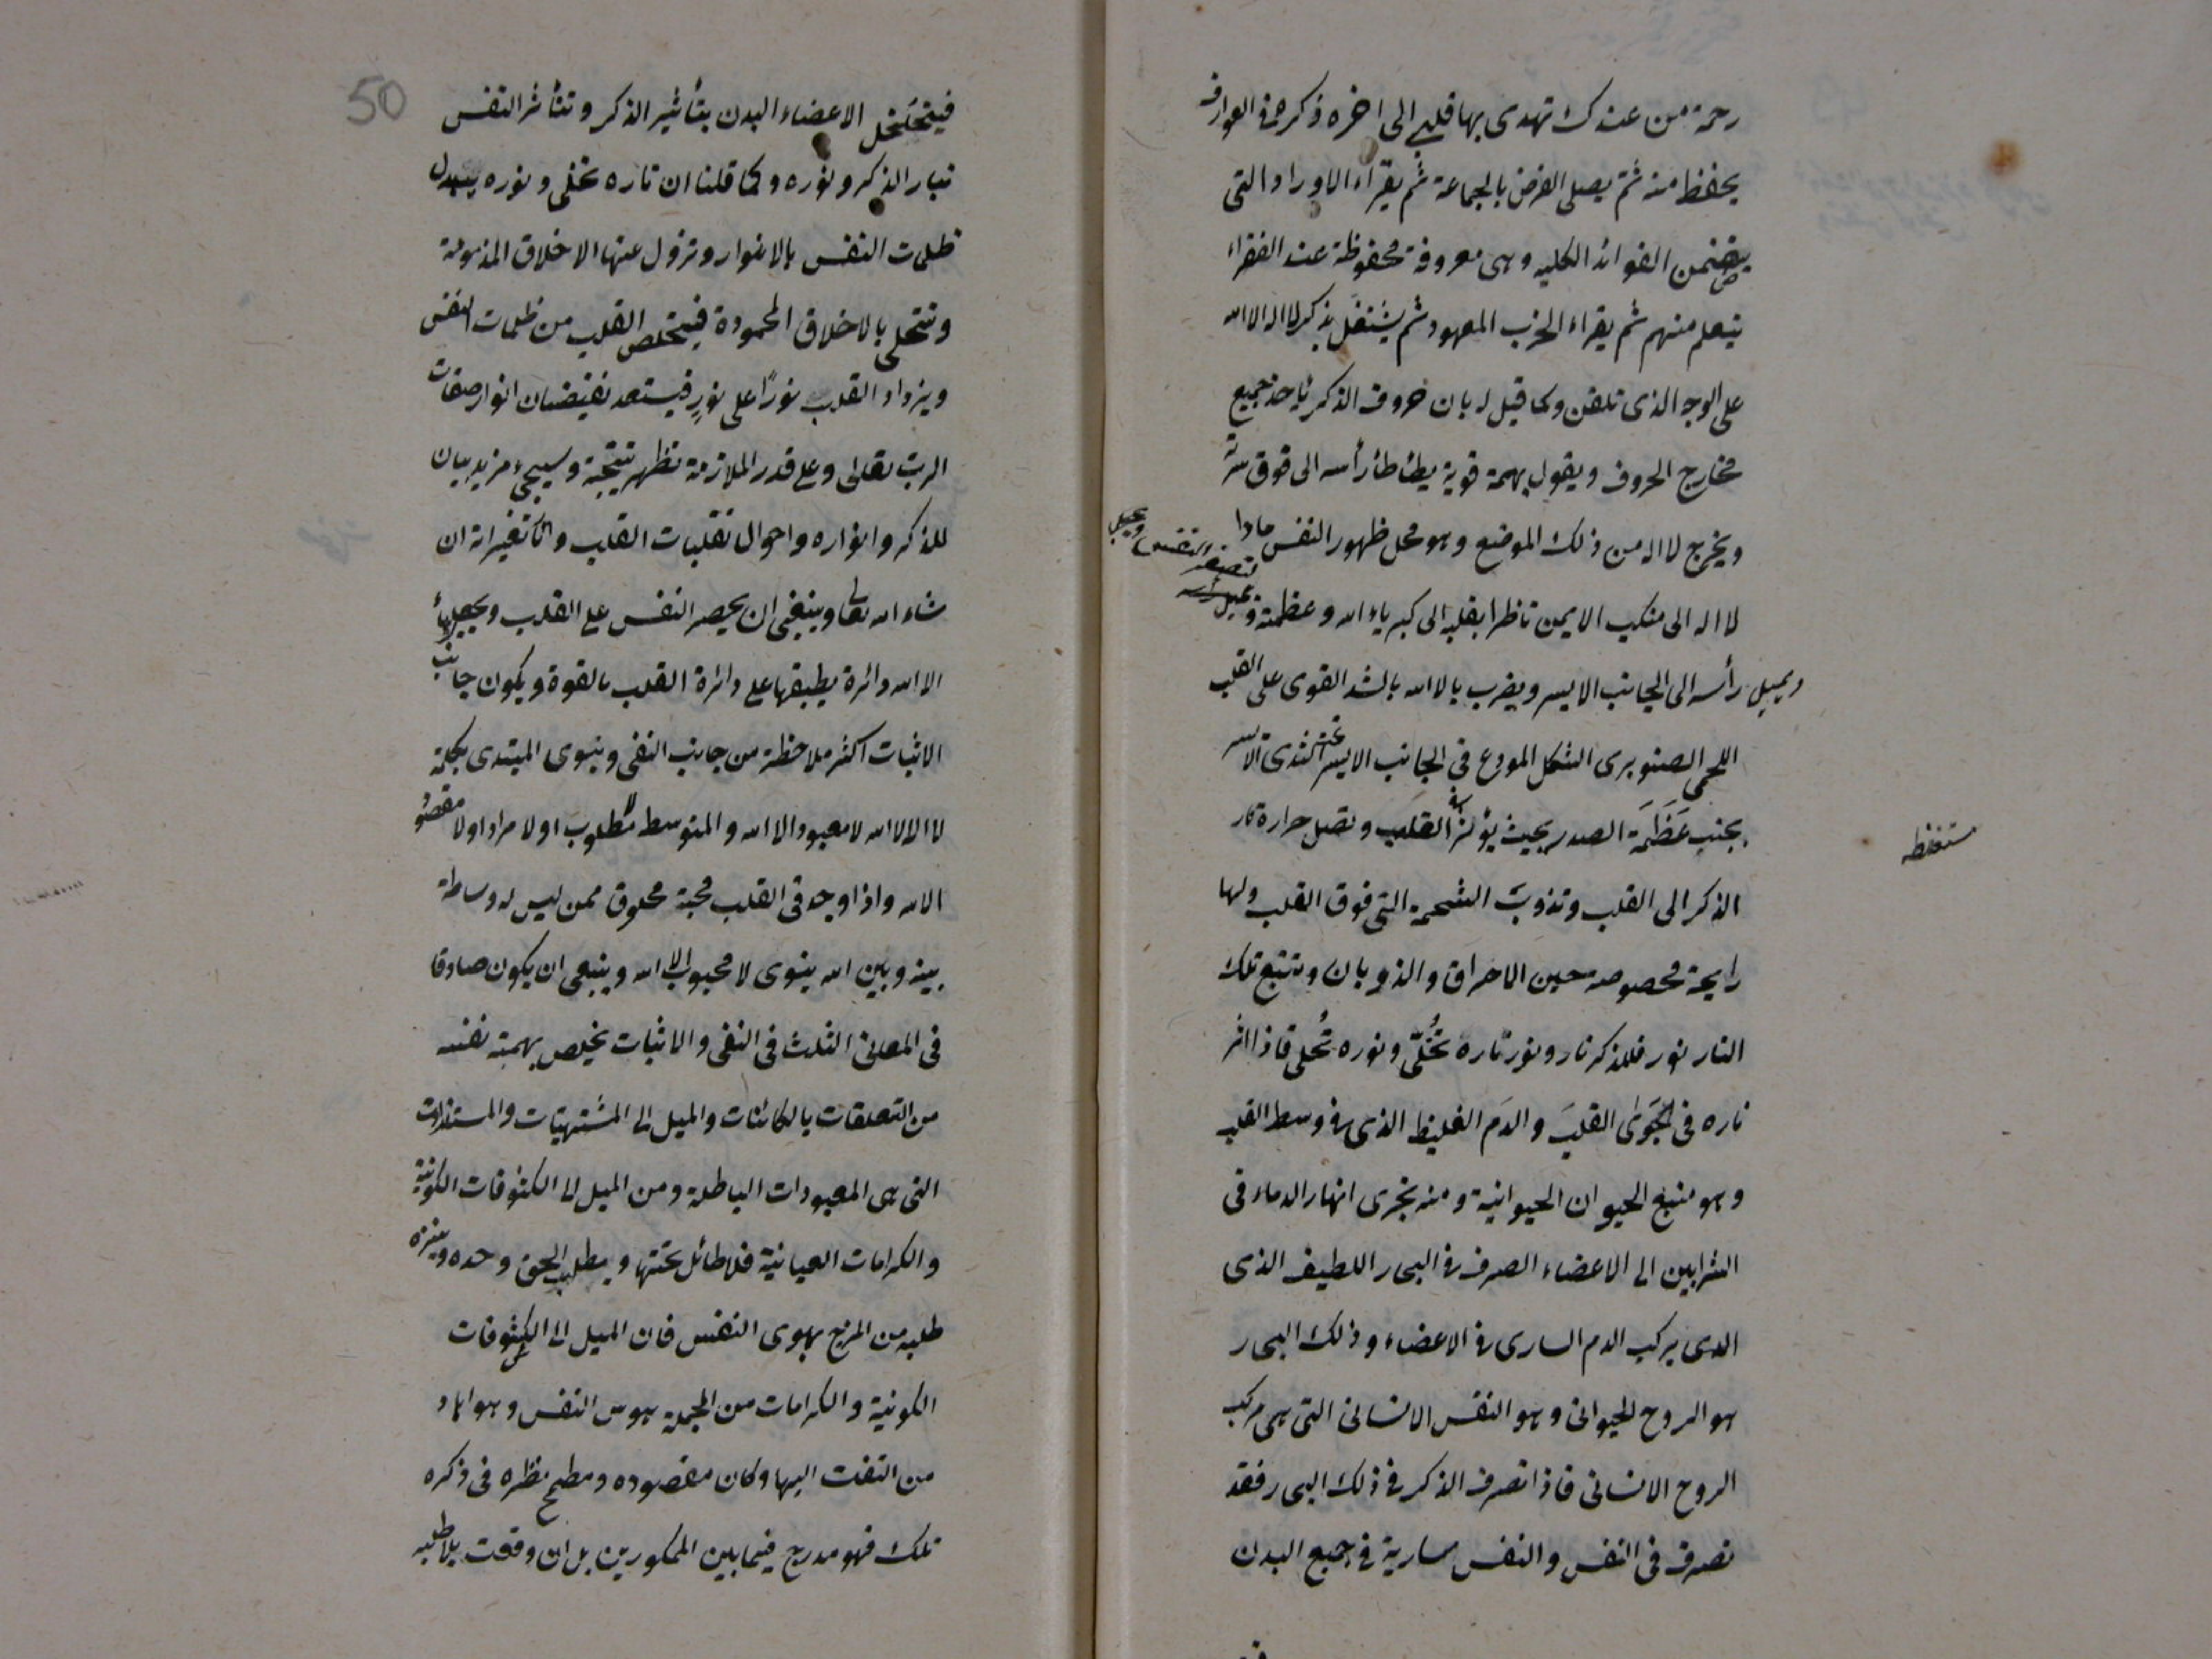 رحمة من عندك تهدى بها قلبى الى اخره ذكره فى العوارف
يحفظ منه ثم يصلى الفرض بالجماعة ثم يقراء الاوراد التى
يتضمن الفوائد الكليه وهى معروفة محفوظة عند الفقراء
يتعلم منهم ثم يقراء الحزب المعهود ثم يشتغل بذكر لا اله الا الله
على الوجه الذى تلقن وكما قيل له بان حروف الذكر ياخذ جميع
مخارج الحروف ويقول بهمة قوية يطأطأ رأسه الى فوق سرته
ويخرج لا اله من ذلك الموضع وهو محل ظهور النفس مادا
لا اله الى منكب الايمن ناظرا بقلبه الى كبرياء الله وعظمته
ويميل رأسه الى الجانب الايسر ويضرب بالا الله بالشد القوى على القلب
اللحمى الصنوبرى الشكل المودع فى الجانب الايسر تحت الثدى الايسر
بجنب عَظَمَة الصدر بحيث يؤثر القلب وتصل حرارة نار
الذكر الى القلب وتذوب الشحمة التى فوق القلب ولها
رايحة مخصوصة حين الاحراق والذوبان وتتبع تلك
النار نور فللذكر نار ونور ناره تُخلّى ونوره تُحلى فاذا اثر
ناره فى القلب والدم الغليظ الذى فى وسط القلب
وهو منبع الحيوان الحيوانية ومنه تجرى انهار الدماء فى
الشرايين الى الاعضاء الصرف فى البحار اللطيف الذى
الدى يركب الدم السارى فى الاعضاء وذلك البحار
هو الروح الحيوانى وهو النفس الانسانى التى هى مركب
الروح الانسانى فاذا تصرف الذكر فى ذلك البحار فقد
تصرف فى النفس والنفس سارية فى جميع البدن
50
فيتخلخل الاعضاء البدن بتأثير الذكر وتتأثر النفس
بنار الذكر ونوره وكما قلنا ان ناره تخلى ونوره يتبدل
ظلمت النفس بالانوار وتزول عنها الاخلاق المذمومة
وتتحلى بالاخلاق المحمودة فيتخلص القلب من ظلمات النفس
ويزداد القلب نورًا على نورٍ فيستعد لفيضان انوار صفات
الرب تعالى وعلى قدر الملازمة تظهر نتيجة وسيجىء مزيد بيان
للذكر وانواره واحوال تقلبات القلب وتغيراته ان
شاء الله تعالى وينبغى ان يحصر النفس على القلب ويجعل
الا الله دائرة يطبقها على دائرة القلب بالقوة ويكون جانب
الاثبات اكثر ملاحظة من جانب النفى وينوى المبتدى بكلمة
لا اله الا الله لا معبود الا الله والمتوسط لا مطلوب او لا مراد او لا مقصود
الا الله واذا وجد فى القلب محبة مخلوق ممن ليس له وساطة
بينه وبين الله ينوى لا محبوب الا الله وينبغى ان يكون صادقا
فى المعانى الثلث فى النفى والاثبات يخلص بهمته نفسه
من التعلقات بالكائنات والميل الى المشتهيات والمستلذات
التى هى المعبودات الباطلة ومن الميل الى الكشوفات الكونية
والكرامات العيانية فلا طائل تحتها ويطلب الحق وحده وينزه
طلبه من المزج بهوى النفس فان الميل الى الكشوفات
الكونية والكرامات من الجملة هوس النفس وهواها و
من التفت اليها وكان مقصوده ومطمح نظره فى ذكره
تلك فهو مدرج فيما بين الممكورين بل ان وقعت بلا طلبه